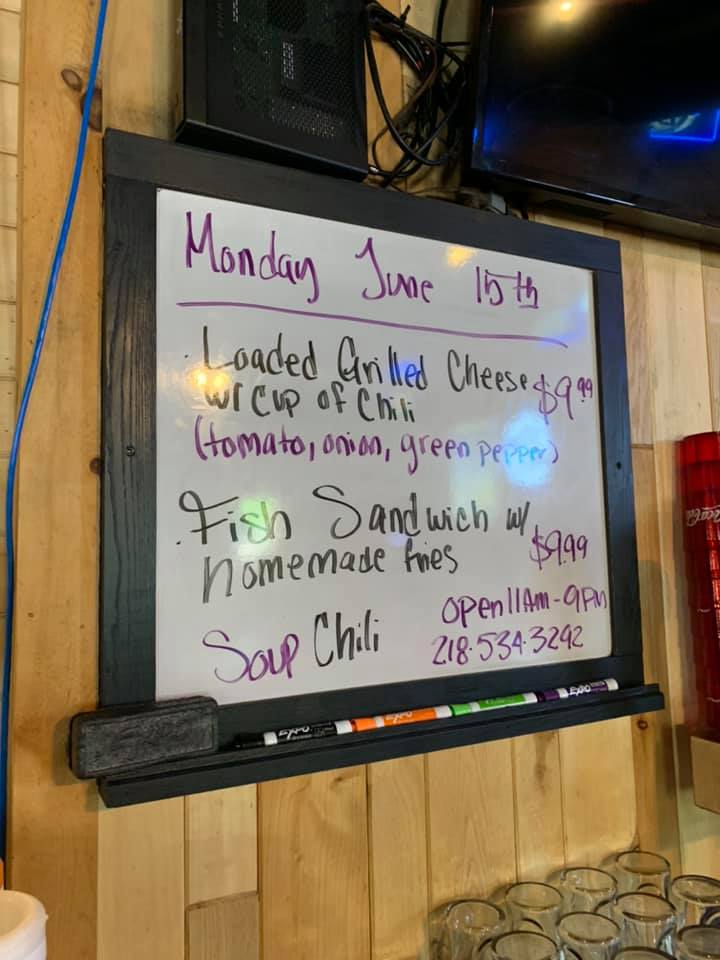 Monday June 15th
. Loaded Grilled Cheese $9.99
w/ Cup of Chili
(tomato, onion, green pepper)
. Fish Sandwich w/
homemade fries $9.99
Soup Chili
open 11Am-9PM
218-534-3292
EXPO
EXPO
EXPO